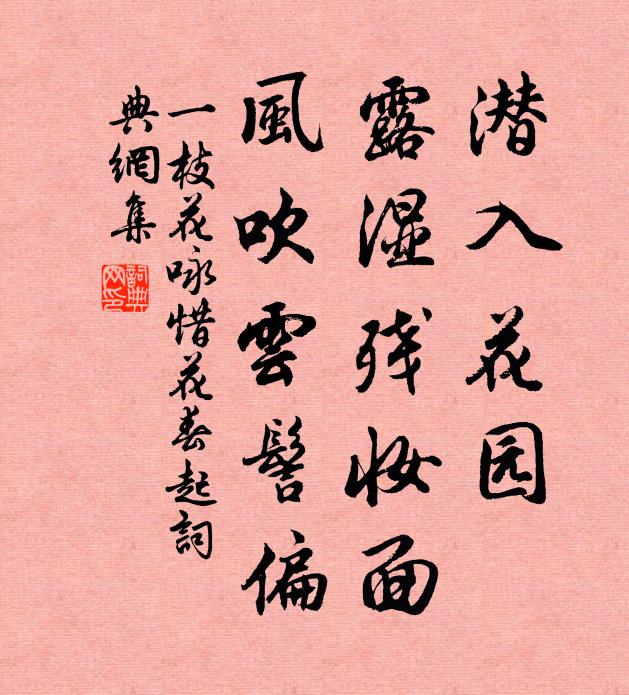 潜入花园
露湿残妆面
風吹雲髻偏
一枝花咏惜花春起詞
典網集
詞典网印